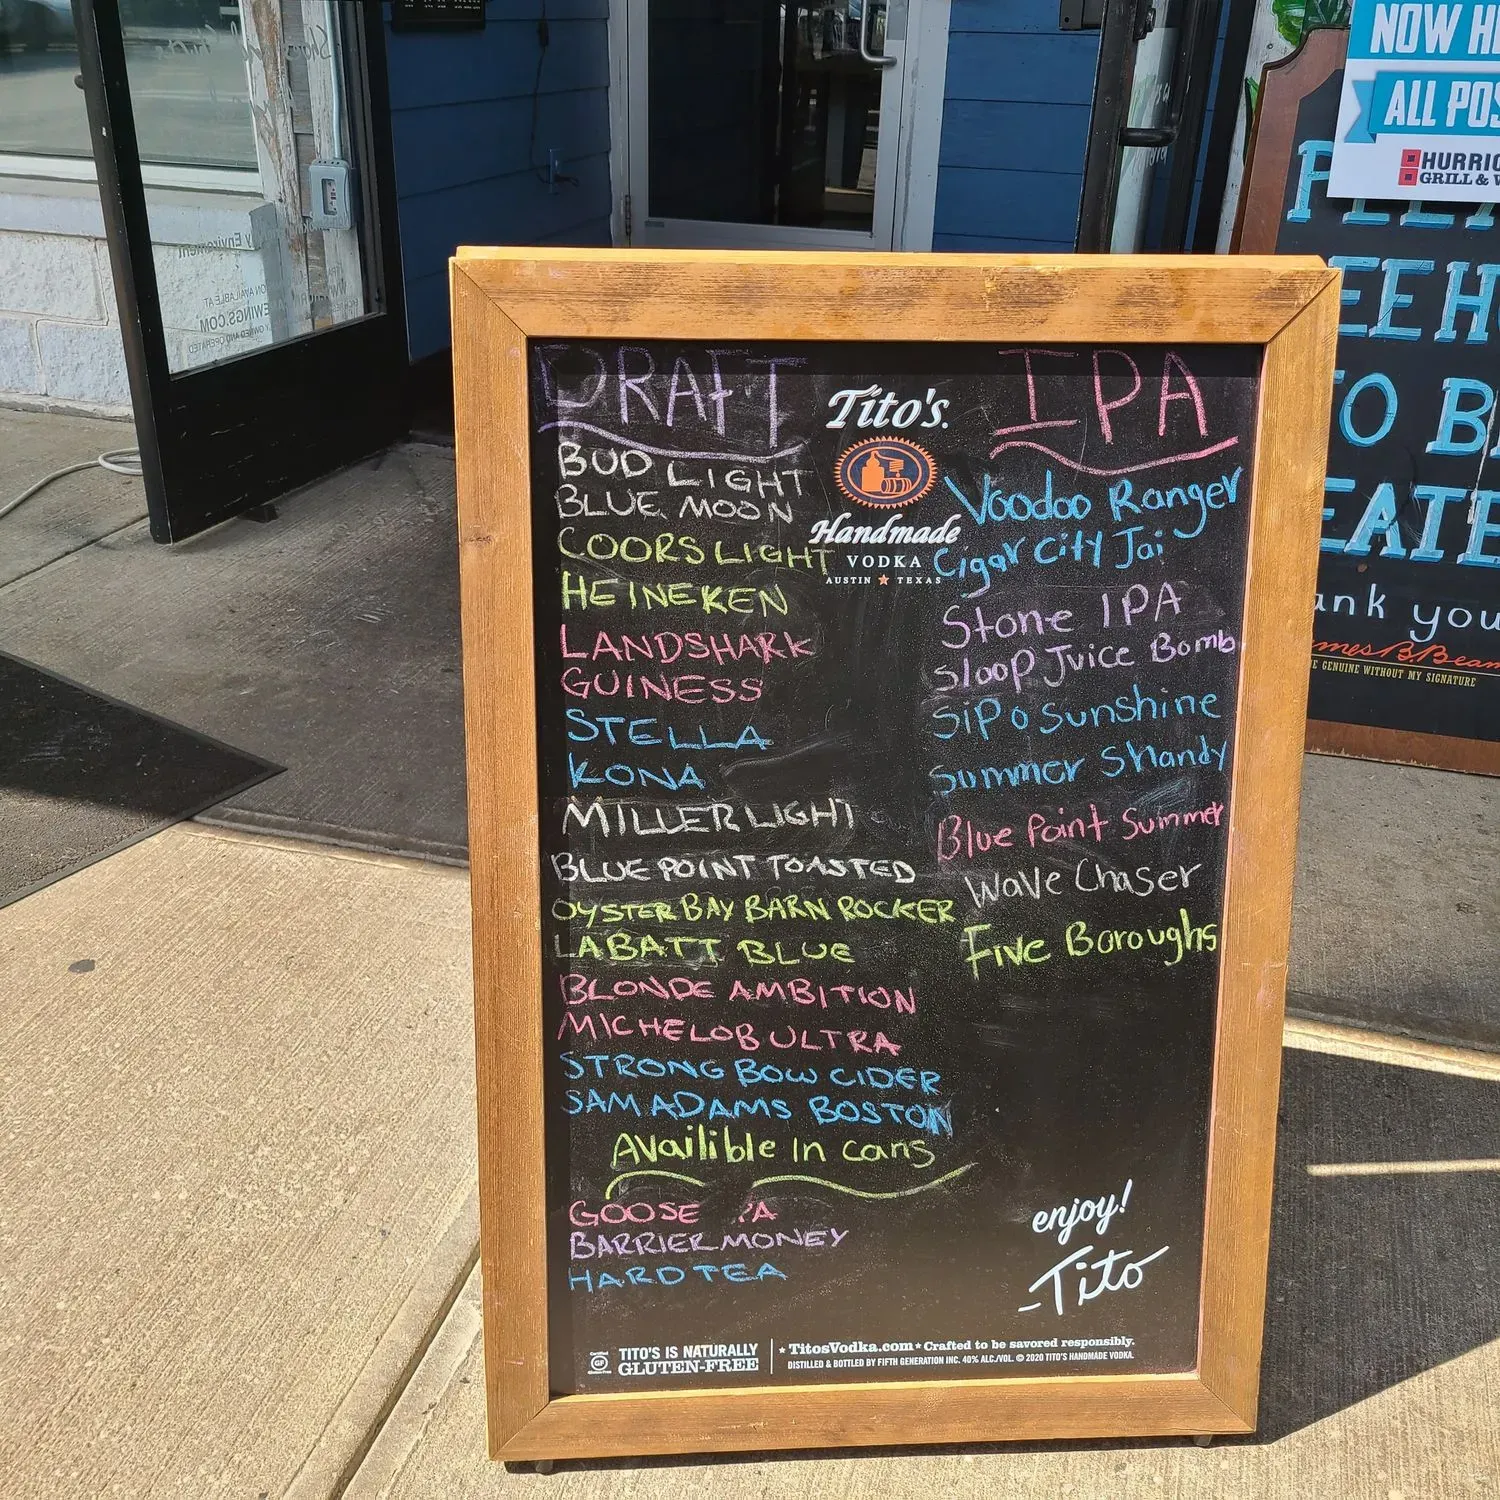 DRAFT
BUD LIGHT
BLUE MOON
COORS LIGHT
HEINEKEN
LANDSHARK
GUINESS
STELLA
KONA
MILLER LIGHT
BLUE POINT TOASTED
OYSTER BAY BARN ROCKER
LABATT BLUE
BLONDE AMBITION
MICHELOB ULTRA
STRONG BOW CIDER
SAM ADAMS BOSTON
Availible In cans
GOOSE IPA
BARRIER MONEY
HARD TEA
Tito's.
Handmade
VODKA
AUSTIN ★ TEXAS
IPA
Voodoo Ranger
Cigar City Jai
Stone IPA
Sloop Juice Bomb
Sip o Sunshine
Summer Shandy
Blue Point Summer
Wave Chaser
Five Boroughs
enjoy!
-Tito
TITO'S IS NATURALLY
GLUTEN-FREE
★ TitosVodka.com ★ Crafted to be savored responsibly.
DISTILLED & BOTTLED BY FIFTH GENERATION INC. 40% ALC./VOL. © 2020 TITO'S HANDMADE VODKA.
NOW HI
ALL POS
HURRIC
GRILL & W
EEH
TO B
EATE
ank you
mes B. Beam
GENUINE WITHOUT MY SIGNATURE
EWINGS.COM